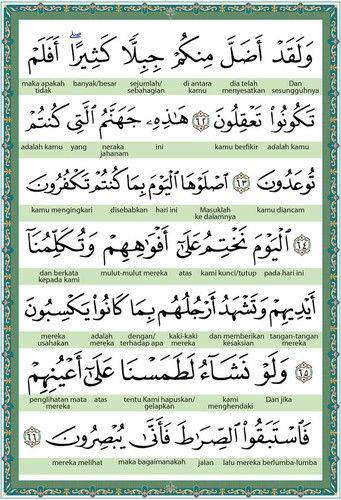 وَلَقَدْ أَضَلَّ مِنكُمْ جِبِلًّا كَثِيرًا ۖ أَفَلَمْ
maka apakah banyak/besar sejumlah/ di antara dia telah Dan
tidak sebahagian kamu menyesatkan sesungguhnya
تَكُونُوا۟ تَعْقِلُونَ ٦٢ هَٰذِهِۦ جَهَنَّمُ ٱلَّتِى كُنتُمْ
adalah kamu yang neraka ini kamu berfikir adalah kamu
jahanam
تُوعَدُونَ ٦٣ ٱصْلَوْهَا ٱلْيَوْمَ بِمَا كُنتُمْ تَكْفُرُونَ
kamu mengingkari disebabkan hari ini Masuklah kamu diancam
ke dalamnya
٦٤ ٱلْيَوْمَ نَخْتِمُ عَلَىٰٓ أَفْوَٰهِهِمْ وَتُكَلِّمُنَآ
dan berkata mulut-mulut mereka atas kami kunci/tutup pada hari ini
kepada kami
أَيْدِيهِمْ وَتَشْهَدُ أَرْجُلُهُم بِمَا كَانُوا۟ يَكْسِبُونَ
mereka adalah dengan/ kaki-kaki dan memberikan tangan-tangan
usahakan mereka terhadap apa mereka kesaksian mereka
٦٥ وَلَوْ نَشَآءُ لَطَمَسْنَا عَلَىٰٓ أَعْيُنِهِمْ
penglihatan mata atas tentu Kami hapuskan/ kami Dan jika
mereka gelapkan menghendaki
فَٱسْتَبَقُوا۟ ٱلصِّرَٰطَ فَأَنَّىٰ يُبْصِرُونَ ٦٦
mereka melihat maka bagaimanakah jalan lalu mereka berlumba-lumba